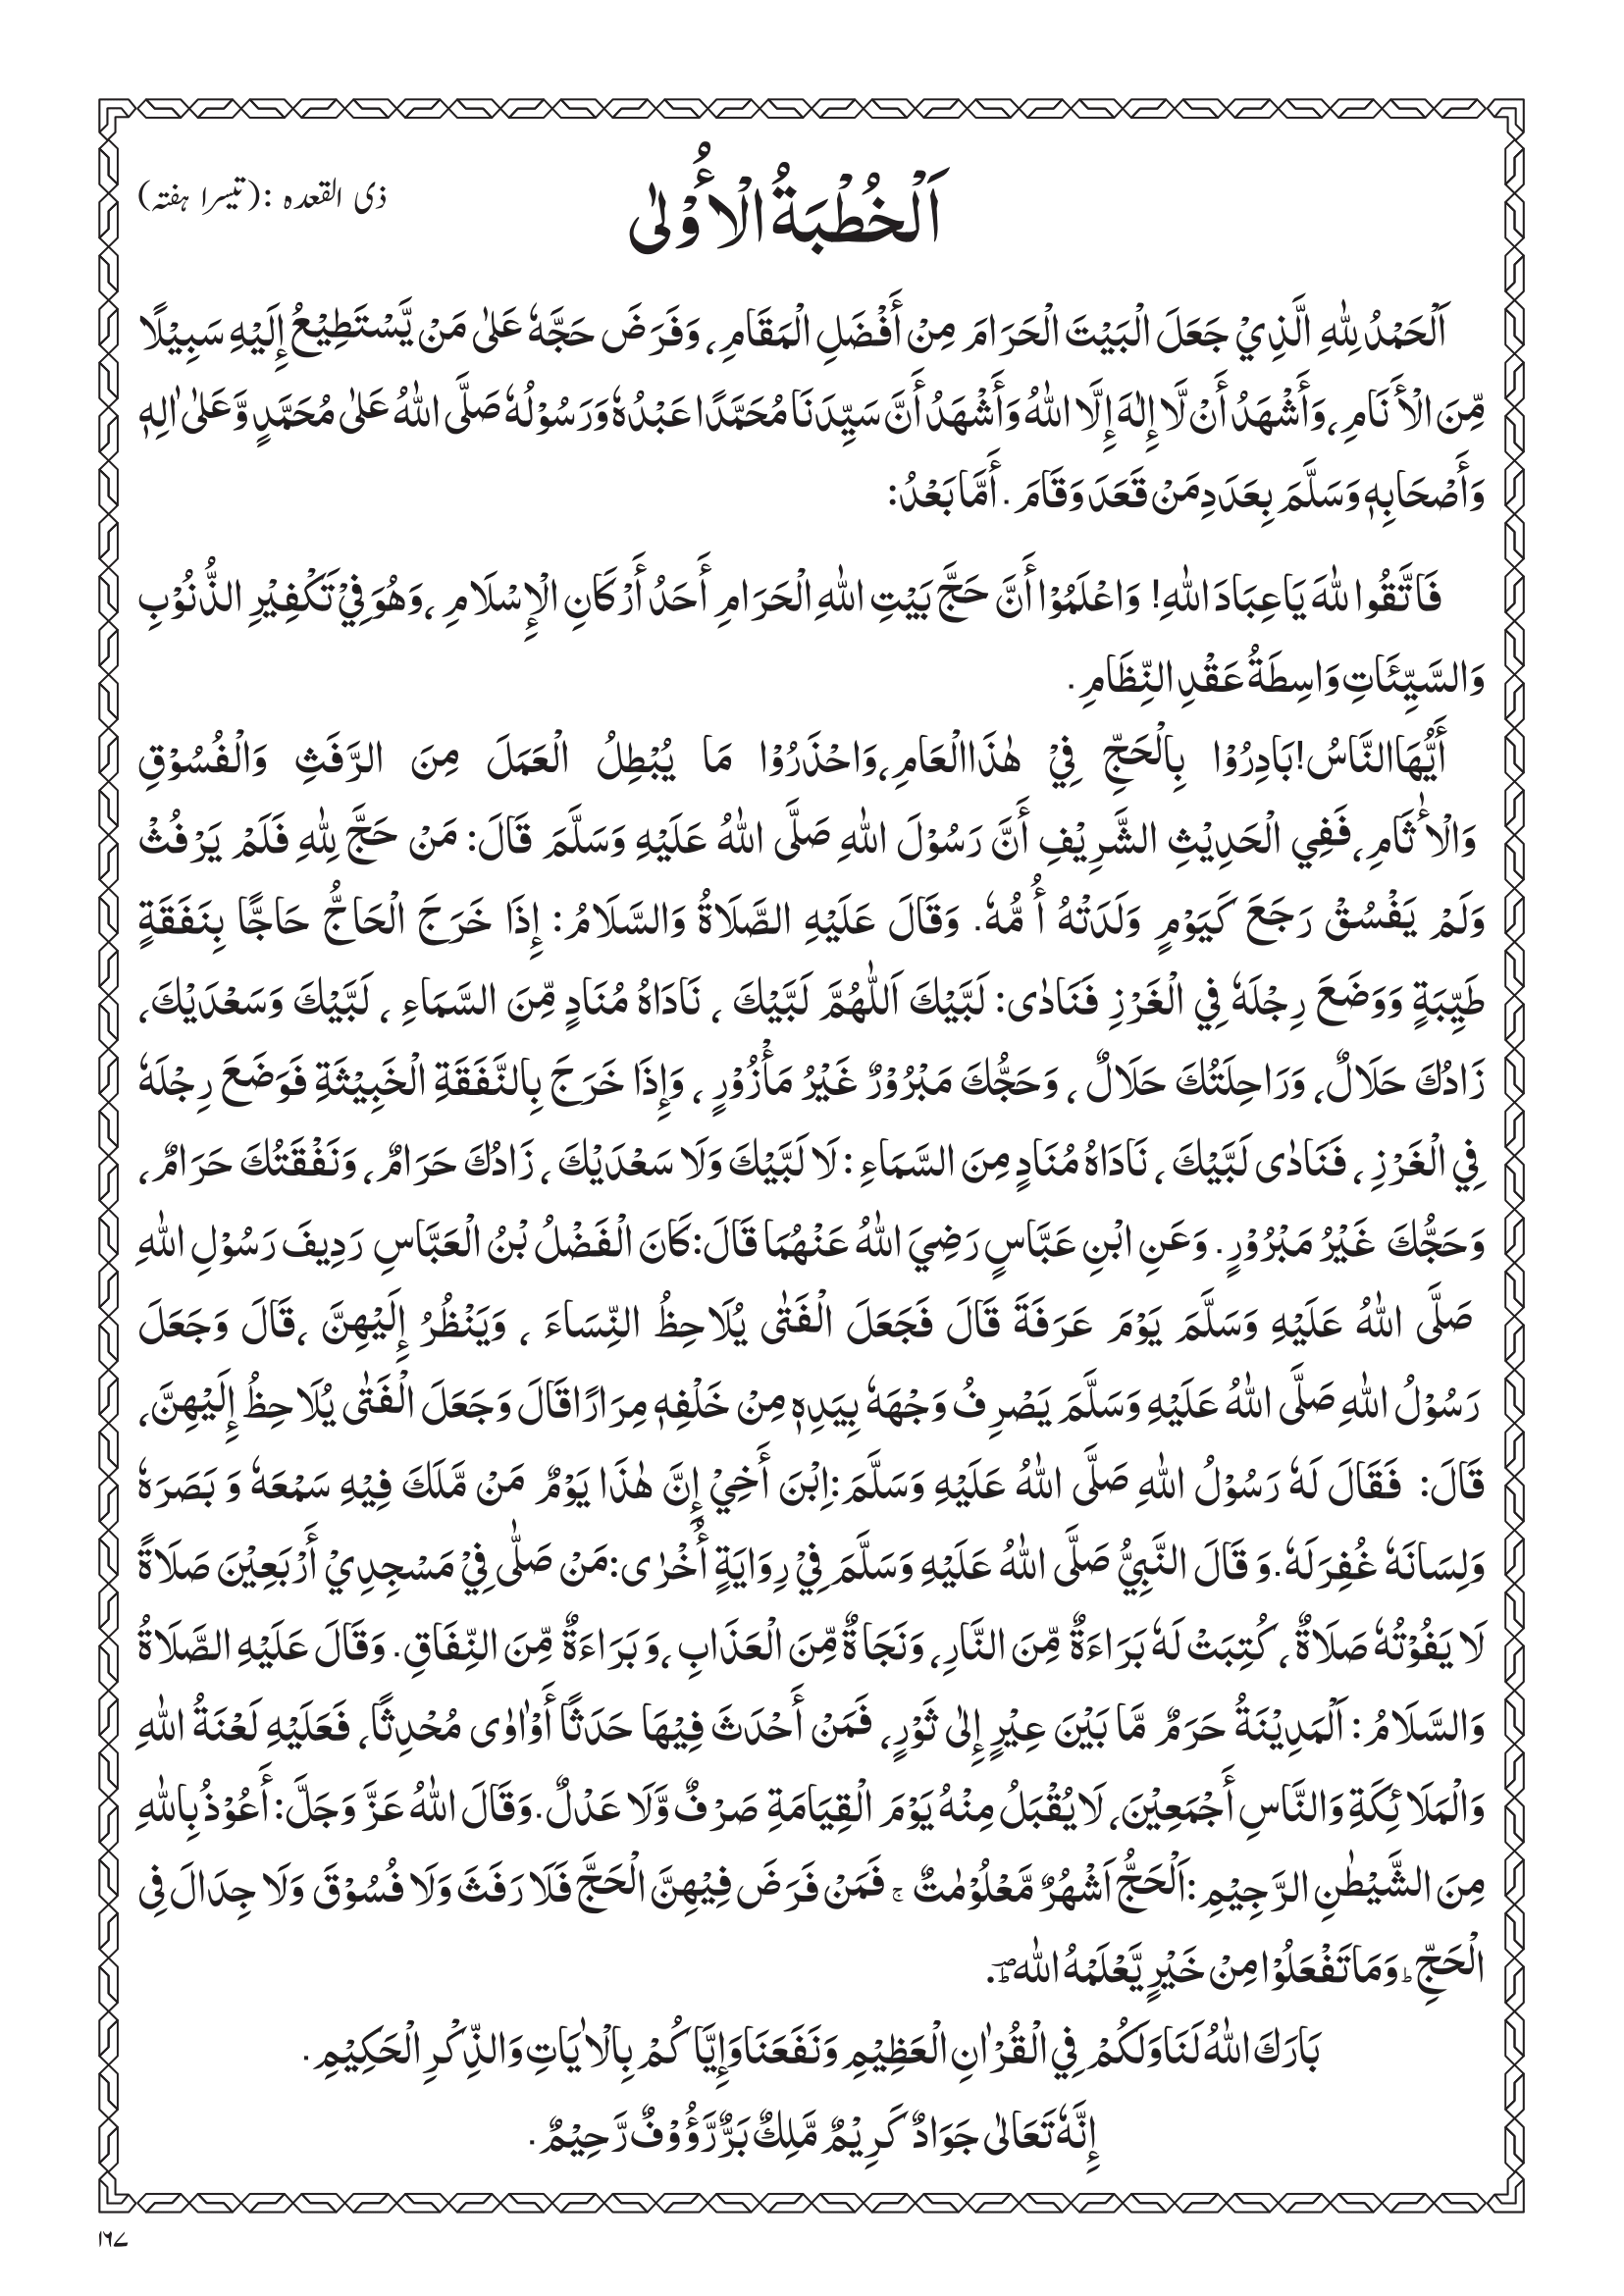 ذی القعدہ :(تیسرا ہفتہ)
اَلْخُطْبَةُ الْأُوْلٰى
اَلْحَمْدُ لِلّٰهِ الَّذِيْ جَعَلَ الْبَيْتَ الْحَرَامَ مِنْ أَفْضَلِ الْمَقَامِ، وَفَرَضَ حَجَّهٗ عَلٰى مَنْ يَّسْتَطِيْعُ إِلَيْهِ سَبِيْلًا
مِّنَ الْأَنَامِ،وَأَشْهَدُ أَنْ لَّا إِلٰهَ إِلَّا اللهُ وَأَشْهَدُ أَنَّ سَيِّدَنَا مُحَمَّدًا عَبْدُهٗ وَرَسُوْلُهٗ صَلَّى اللهُ عَلٰى مُحَمَّدٍ وَّعَلٰى اٰلِهٖ
وَأَصْحَابِهٖ وَسَلَّمَ بِعَدَدِ مَنْ قَعَدَ وَقَامَ . أَمَّا بَعْدُ:
فَاتَّقُوا للهَ يَاعِبَادَ اللهِ! وَاعْلَمُوْا أَنَّ حَجَّ بَيْتِ اللهِ الْحَرَامِ أَحَدُ أَرْكَانِ الْإِسْلَامِ ،وَهُوَ فِيْ تَكْفِيْرِ الذُّنُوْبِ
وَالسَّيِّئَاتِ وَاسِطَةُ عَقْدِ النِّظَامِ .
أَيُّهَاالنَّاسُ!بَادِرُوْا بِالْحَجِّ فِيْ هٰذَاالْعَامِ،وَاحْذَرُوْا مَا يُبْطِلُ الْعَمَلَ مِنَ الرَّفَثِ وَالْفُسُوْقِ
وَالْاٰثَامِ،فَفِي الْحَدِيْثِ الشَّرِيْفِ أَنَّ رَسُوْلَ اللهِ صَلَّى اللهُ عَلَيْهِ وَسَلَّمَ قَالَ: مَنْ حَجَّ لِلّٰهِ فَلَمْ يَرْفُثْ
وَلَمْ يَفْسُقْ رَجَعَ كَيَوْمٍ وَلَدَتْهُ أُمُّهٗ. وَقَالَ عَلَيْهِ الصَّلَاةُ وَالسَّلَامُ: إِذَا خَرَجَ الْحَاجُّ حَاجًّا بِنَفَقَةٍ
طَيِّبَةٍ وَوَضَعَ رِجْلَهٗ فِي الْغَرْزِ فَنَادٰى: لَبَّيْكَ اَللّٰهُمَّ لَبَّيْكَ ، نَادَاهُ مُنَادٍ مِّنَ السَّمَاءِ ، لَبَّيْكَ وَسَعْدَيْكَ،
زَادُكَ حَلَالٌ، وَرَاحِلَتُكَ حَلَالٌ ، وَحَجُّكَ مَبْرُوْرٌ غَيْرُ مَأْزُوْرٍ ، وَإِذَا خَرَجَ بِالنَّفَقَةِ الْخَبِيْثَةِ فَوَضَعَ رِجْلَهٗ
فِي الْغَرْزِ ، فَنَادٰى لَبَّيْكَ ، نَادَاهُ مُنَادٍ مِنَ السَّمَاءِ : لَا لَبَّيْكَ وَلَا سَعْدَيْكَ ، زَادُكَ حَرَامٌ، وَنَفْقَتُكَ حَرَامٌ،
وَحَجُّكَ غَيْرُ مَبْرُوْرٍ. وَعَنِ ابْنِ عَبَّاسٍ رَضِيَ اللهُ عَنْهُمَا قَالَ:كَانَ الْفَضْلُ بْنُ الْعَبَّاسِ رَدِيفَ رَسُوْلِ اللهِ
صَلَّى اللهُ عَلَيْهِ وَسَلَّمَ يَوْمَ عَرَفَةَ قَالَ فَجَعَلَ الْفَتٰى يُلَاحِظُ النِّسَاءَ ، وَيَنْظُرُ إِلَيْهِنَّ ،قَالَ وَجَعَلَ
رَسُوْلُ اللهِ صَلَّى اللهُ عَلَيْهِ وَسَلَّمَ يَصْرِفُ وَجْهَهٗ بِيَدِهٖ مِنْ خَلْفِهٖ مِرَارًا قَالَ وَجَعَلَ الْفَتٰى يُلَاحِظُ إِلَيْهِنَّ،
قَالَ: فَقَالَ لَهٗ رَسُوْلُ اللهِ صَلَّى اللهُ عَلَيْهِ وَسَلَّمَ:اِبْنَ أَخِيْ إِنَّ هٰذَا يَوْمٌ مَنْ مَّلَكَ فِيْهِ سَمْعَهٗ وَ بَصَرَهٗ
وَلِسَانَهٗ غُفِرَ لَهٗ.وَ قَالَ النَّبِيُّ صَلَّى اللهُ عَلَيْهِ وَسَلَّمَ فِيْ رِوَايَةٍ أُخْرٰى:مَنْ صَلّٰى فِيْ مَسْجِدِيْ أَرْبَعِيْنَ صَلَاةً
لَا يَفُوْتُهٗ صَلَاةٌ ، كُتِبَتْ لَهٗ بَرَاءَةٌ مِّنَ النَّارِ، وَنَجَاةٌ مِّنَ الْعَذَابِ ،وَ بَرَاءَةٌ مِّنَ النِّفَاقِ. وَقَالَ عَلَيْهِ الصَّلَاةُ
وَالسَّلَامُ: اَلْمَدِيْنَةُ حَرَمٌ مَّا بَيْنَ عِيْرٍ إِلٰى ثَوْرٍ، فَمَنْ أَحْدَثَ فِيْهَا حَدَثًا أَوْ اٰوٰى مُحْدِثًا، فَعَلَيْهِ لَعْنَةُ اللهِ
وَالْمَلَائِكَةِ وَالنَّاسِ أَجْمَعِيْنَ، لَا يُقْبَلُ مِنْهُ يَوْمَ الْقِيَامَةِ صَرْفٌ وَّلَا عَدْلٌ.وَقَالَ اللهُ عَزَّ وَجَلَّ: أَعُوْذُ بِاللهِ
مِنَ الشَّيْطٰنِ الرَّجِيْمِ:اَلْحَجُّ اَشْهُرٌ مَّعْلُوْمٰتٌ ۚ فَمَنْ فَرَضَ فِيْهِنَّ الْحَجَّ فَلَا رَفَثَ وَلَا فُسُوْقَ وَلَا جِدَالَ فِى
الْحَجِّ ؕ وَمَا تَفْعَلُوْا مِنْ خَيْرٍ يَّعْلَمْهُ اللهُ ؕؔ.
بَارَكَ اللهُ لَنَا وَلَكُمْ فِي الْقُرْاٰنِ الْعَظِيْمِ وَنَفَعَنَا وَإِيَّاكُمْ بِالْاٰيَاتِ وَالذِّكْرِ الْحَكِيْمِ .
إِنَّهٗ تَعَالٰى جَوَادٌ كَرِيْمٌ مَّلِكٌ بَرٌّ رَّؤُوْفٌ رَّحِيْمٌ .
۱۶۷